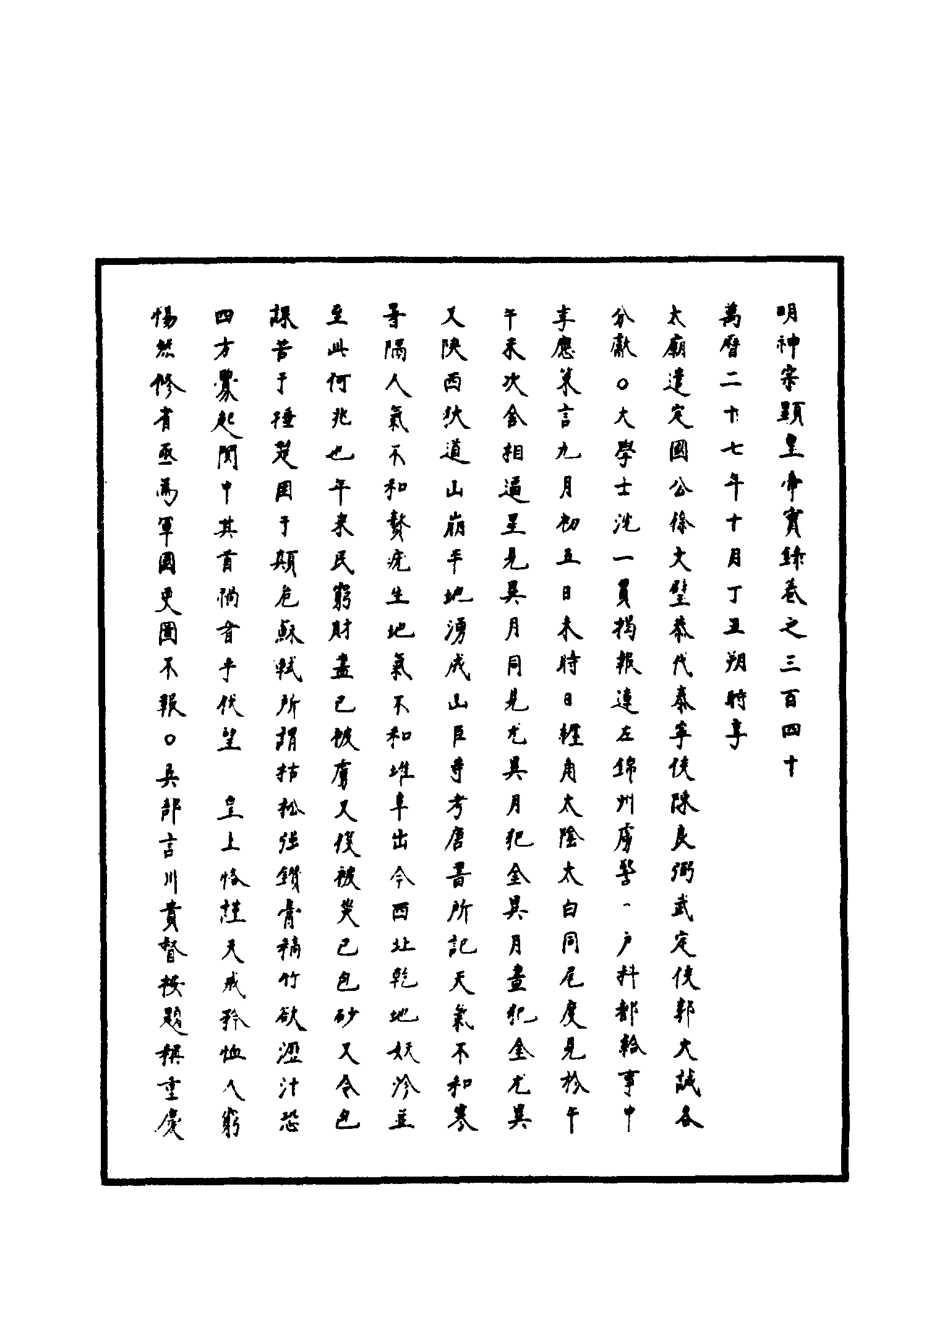 明神宗顯皇帝實錄卷之三百四十
萬曆二十七年十月丁丑朔時享
太廟遣定國公徐文璧恭代泰寧侯陳良弼武定侯郭大誠各
分獻○大學士沈一貫揭報連左錦州虜警、戶科都給事中
李應策言九月初五日未時日經角太陰太白同尾度見於午
午未次舍相逼星見異月同見尤異月犯金異月晝犯金尤異
又陝西狄道山崩平地湧成山臣等考唐書所記天氣不和寒
暑隔人氣不和贅疣生地氣不和堆阜出今西北乾地妖沴並
至此何兆也年來民窮財盡已被虜又復被災已包砂又令包
課苦于捶楚困于顛危蘇軾所謂枯松強鑽膏槁竹欲瀝汁恐
四方釁起關中其首禍者乎伏望　皇上恪謹天戒矜恤人窮
惕然修省亟為軍國更圖不報○兵部言川貴督按題稱重慶